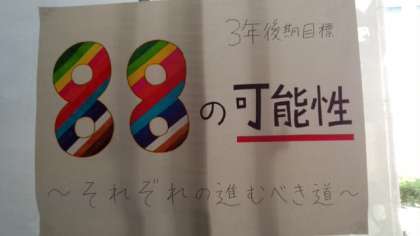 3年後期目標
88の可能性
～それぞれの進むべき道～